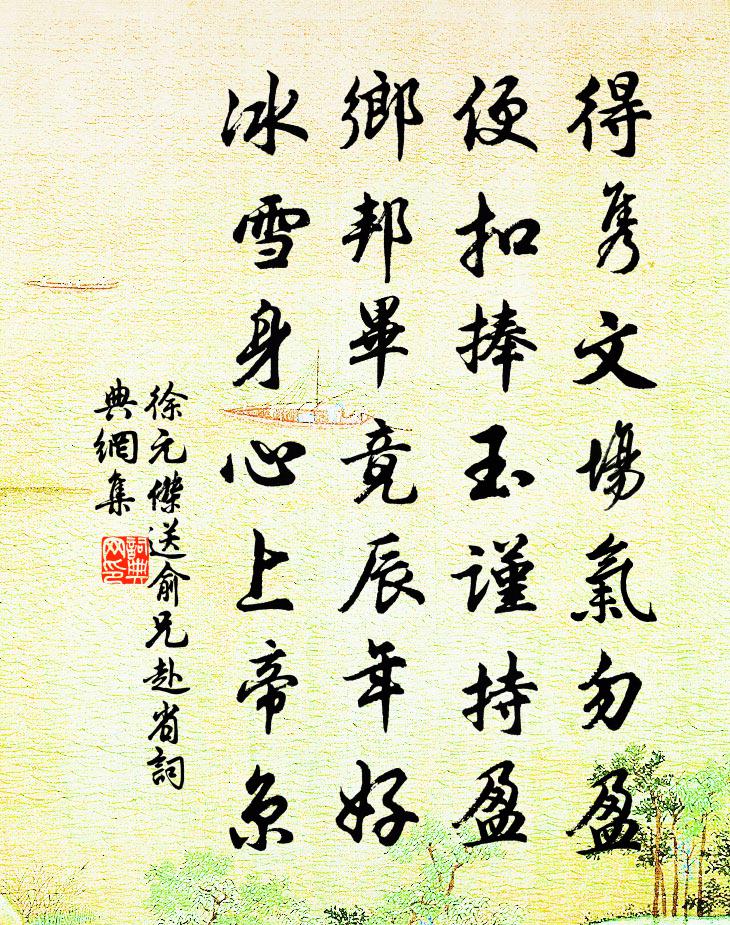 得隽文場氣勿盈
便扣捧玉謹持盈
鄉邦畢竟辰年好
冰雪身心上帝京
徐元傑送俞兄赴省詞
典網集
詞典
网印